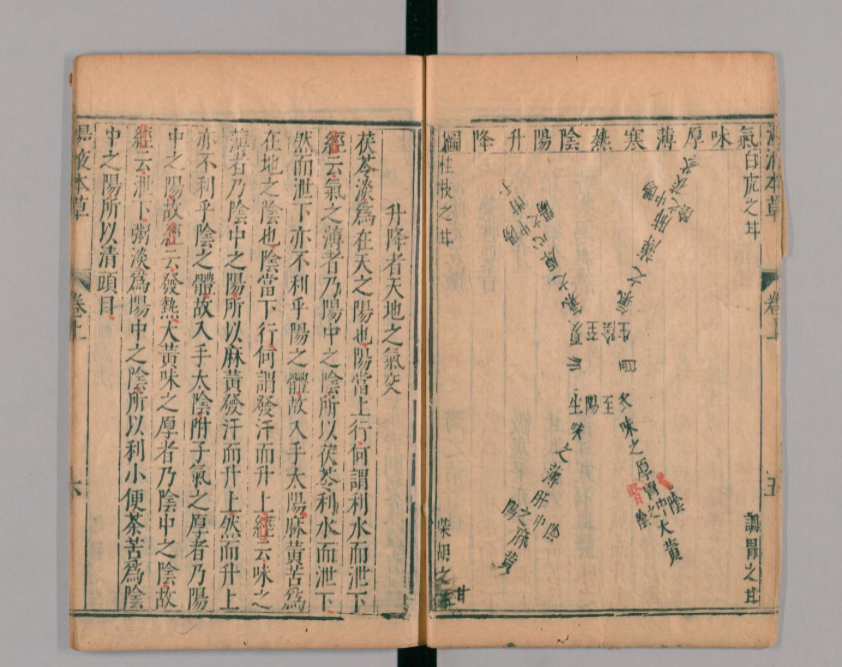 湯液本草
卷上
五
氣味厚薄寒熱陰陽升降圖
白虎之甘
桂枝之甘
調胃之甘
柴胡之
甘
氣之薄肺
氣之厚心之
夏至陰生
冬至陽生
味之厚
腎
陰中之陰
大黃
味之薄
肝
陰中之陽
麻黃
升降者天地之氣交
茯苓淡爲在天之陽也陽當上行何謂利水而泄下
經云氣之薄者乃陽中之陰所以茯苓利水而泄下
然而泄下亦不利乎陽之體故入手太陽麻黃苦爲
在地之陰也陰當下行何謂發汗而升上經云味之
薄者乃陰中之陽所以麻黃發汗而升上然而升上
亦不利乎陰之體故入手太陰附子氣之厚者乃陽
中之陽故經云發熱大黃味之厚者乃陰中之陰故
經云泄下粥淡爲陽中之陰所以利小便茶苦爲陰
中之陽所以清頭目
湯液本草
卷上
六